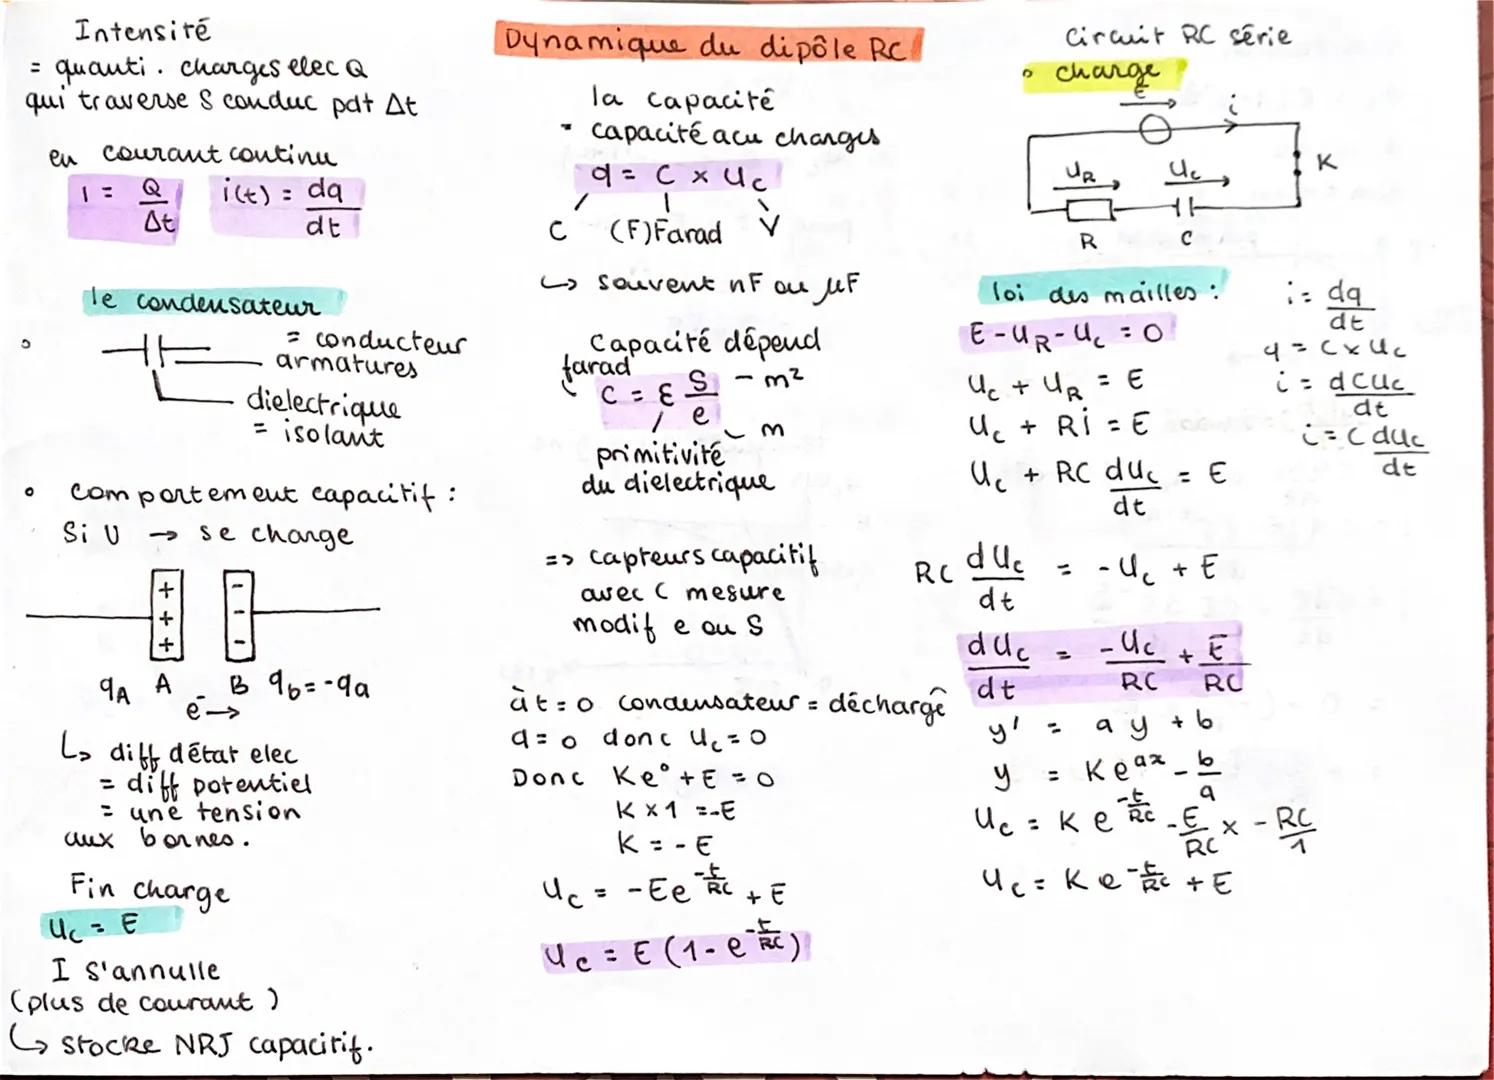 Intensité
= quanti. charges elec Q
qui traverse S conduc pdt Δt
en courant continu
I = Q/Δt i(t) = dq/dt
le condensateur
= conducteur
armatures
dielectrique
= isolant
• comportement capacitif :
Si U → se charge
+ + + - - -
qA A B qb=-qa
e- →
↳ diff détat elec
= diff potentiel
= une tension
aux bornes.
Fin charge
Uc = E
I s'annulle
(plus de courant)
↳ stocke NRJ capacitif.
Dynamique du dipôle RC
la capacité
- capacité acu charges
q = C × Uc
C (F)Farad V
↳ souvent nF ou µF
Capacité dépend
farad
C = ε S/e - m²
m
primitivité
du dielectrique
=> capteurs capacitif
avec C mesure
modif e ou S
à t=0 condensateur = déchargé
q=0 donc Uc=0
Donc Ke⁰+E=0
K×1 =-E
K = -E
Uc = -Ee^(-t/RC) + E
Uc = E(1-e^(-t/RC))
Circuit RC série
• charge
E i
K
UR Uc
R C
loi des mailles :
E-UR-Uc = 0
Uc + UR = E
Uc + Ri = E
Uc + RC dUc/dt = E
i = dq/dt
q = C×Uc
i = dCUc/dt
i = C dUc/dt
RC dUc/dt = -Uc + E
dUc/dt = -Uc/RC + E/RC
y' = ay + b
y = Ke^(ax) - b/a
Uc = Ke^(-t/RC) - E/RC × -RC/1
Uc = Ke^(-t/RC) + E